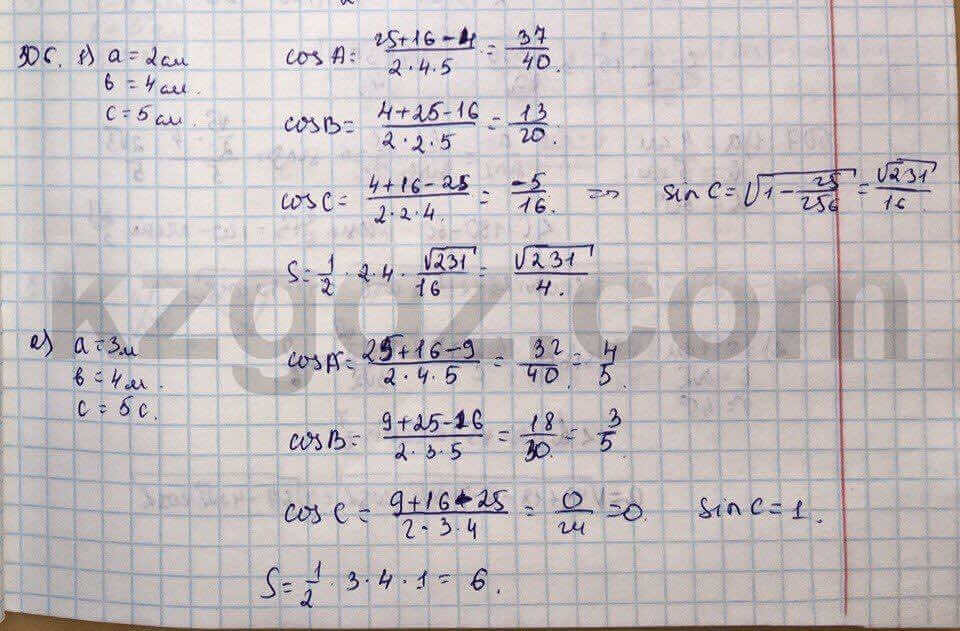 306. 1) a = 2 см cos A = (25+16-4)/(2·4·5) = 37/40.
в = 4 см.
c = 5 см. cos B = (4+25-16)/(2·2·5) = 13/20.
cos C = (4+16-25)/(2·2·4.) = -5/16. => sin C = √(1 - 25/256) = √231/16
S = 1/2 · 2·4 · √231/16 = √231/4.
kzgdz.com
2) a = 3м cos A = (25+16-9)/(2·4·5) = 32/40 = 4/5.
в = 4м.
c = 5 c. cos B = (9+25-16)/(2·3·5) = 18/30. = 3/5.
cos C = (9+16-25)/(2·3·4) = 0/24 = 0. sin C = 1.
S = 1/2 · 3·4·1 = 6.